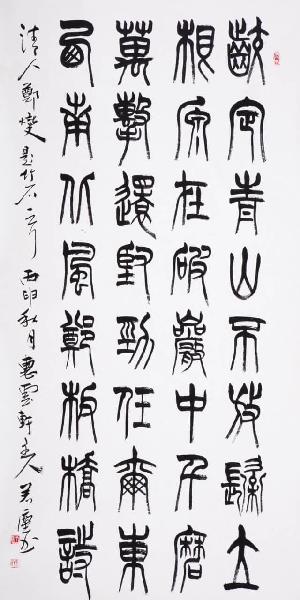 齩定青山不放鬆立
根原在破巖中千磨
萬擊還堅勁任爾東
西南北風鄭板橋詩
清人鄭燮題竹石一首 丙申秋月 雲軒主人